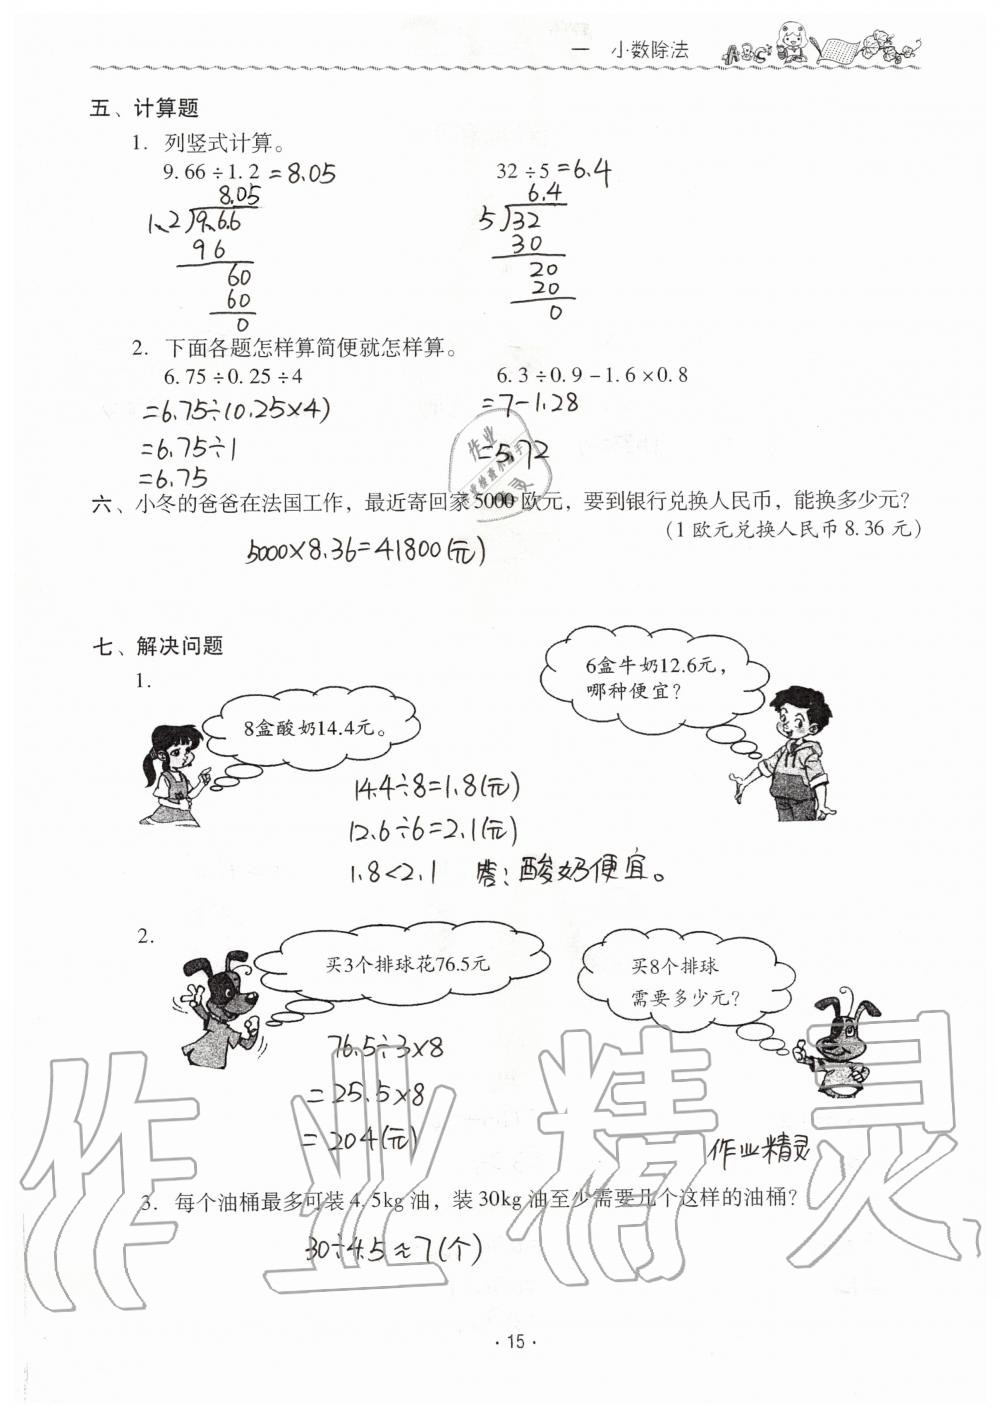 一 小数除法
五、计算题
1. 列竖式计算。
9.66÷1.2=8.05 32÷5=6.4
8.05 6.4
1.2 9.6.6 5 32
96 30
60 20
60 20
0 0
2. 下面各题怎样算简便就怎样算。
6.75÷0.25÷4 6.3÷0.9-1.6×0.8
=6.75÷(0.25×4) =7-1.28
=6.75÷1 =5.72
=6.75
六、小冬的爸爸在法国工作，最近寄回家5000欧元，要到银行兑换人民币，能换多少元？
(1欧元兑换人民币8.36元)
5000×8.36=41800(元)
七、解决问题
1.
8盒酸奶14.4元。
6盒牛奶12.6元，
哪种便宜？
14.4÷8=1.8(元)
12.6÷6=2.1(元)
1.8<2.1 答：酸奶便宜。
2.
买3个排球花76.5元
买8个排球
需要多少元？
76.5÷3×8
=25.5×8
=204(元)
作业精灵
3. 每个油桶最多可装4.5kg油，装30kg油至少需要几个这样的油桶？
30÷4.5≈7(个)
作业精灵
·15·